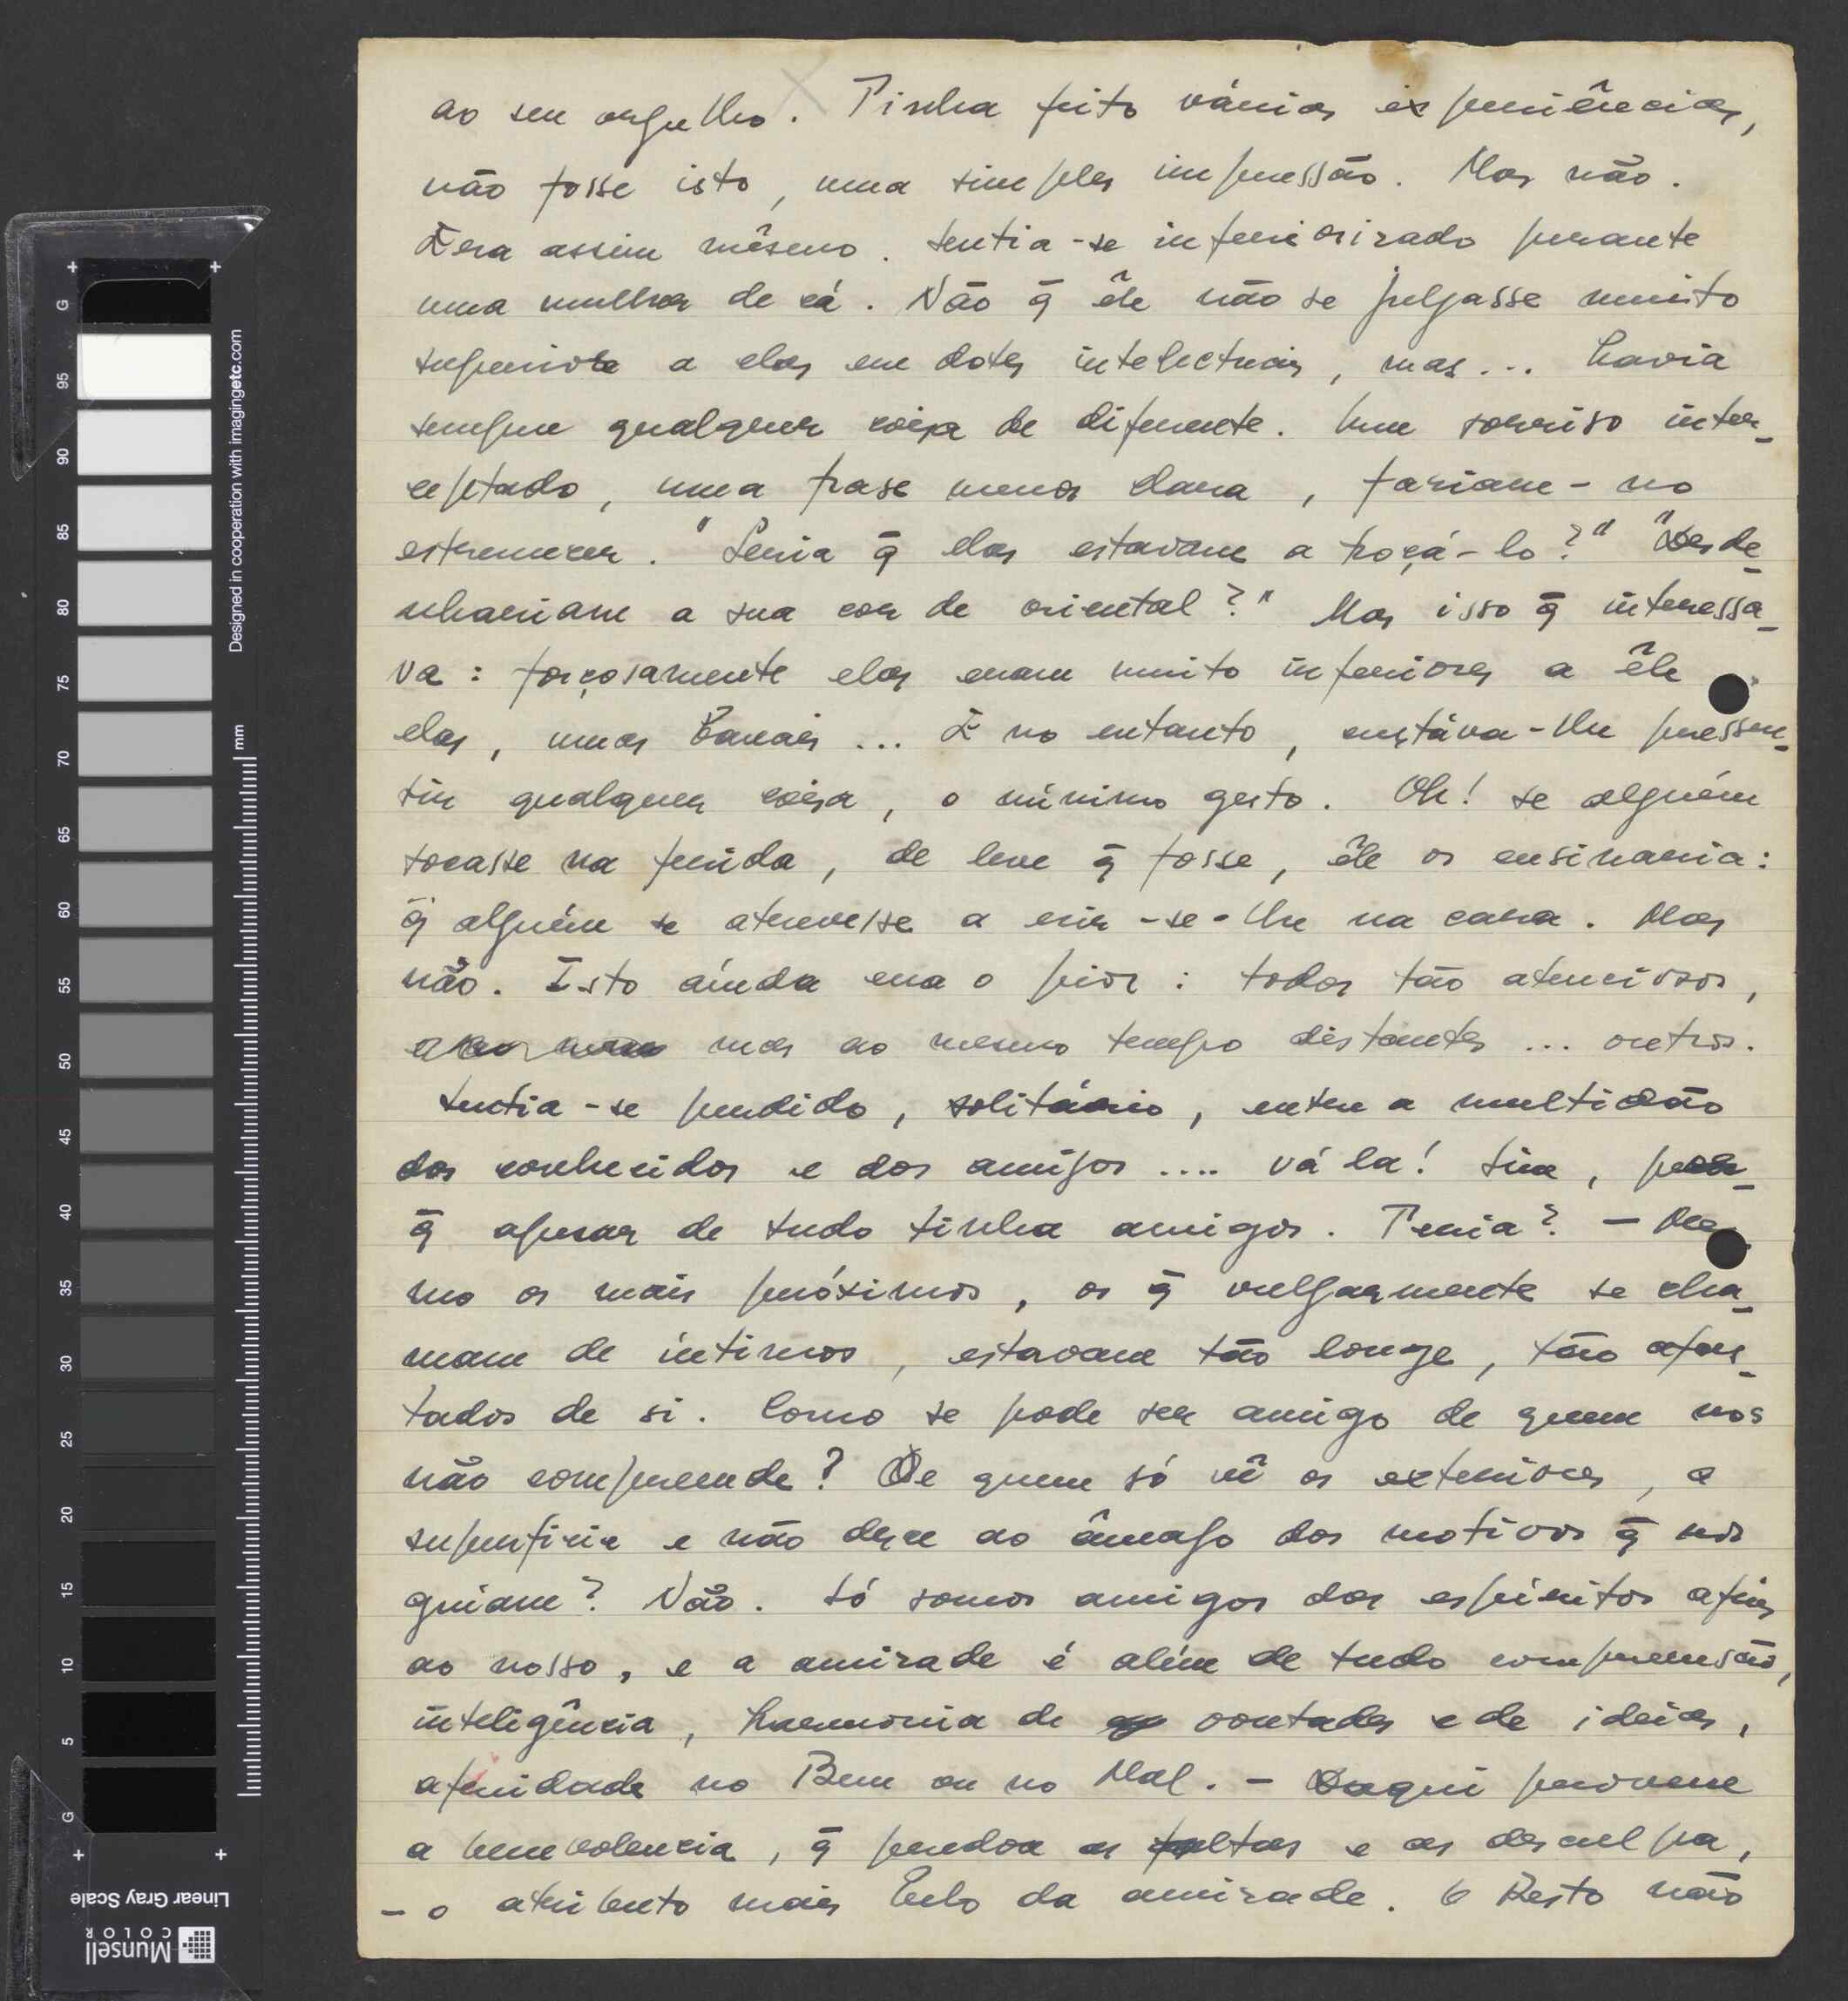 ao seu orgulho. Tinha feito várias experiências,
não fosse isto, uma simples impressão. Mas não.
Era assim mêsmo. Sentia-se inferiorizado perante
uma mulher de cá. Não q̄ êle não se julgasse muito
superior a elas em dotes intelectuais, mas... havia
sempre qualquer coisa de diferente. Um sorriso inter-
ceptado, uma frase menos clara, faziam-no
estremecer. "Seria q̄ elas estavam a troçá-lo?" "Desde-
nhariam a sua cor de oriental?" Mas isso q̄ interessa-
va: forçosamente elas eram muito inferiores a êle
elas, umas banais... E no entanto, custáva-lhe pressen-
tir qualquer coisa, o mínimo gesto. Oh! se alguém
tocasse na ferida, de leve q̄ fosse, êle os ensinaria:
q̄ alguém se atrevesse a rir-se-lhe na cara. Mas
não. Isto aínda era o pior: todos tão atenciosos,
mas ao mesmo tempo distantes... outros.
Sentia-se perdido, solitário, entre a multidão
dos conhecidos e dos amigos.... vá la! Sim, por-
q̄ apesar de tudo tinha amigos. Teria? — Mes-
mo os mais próximos, os q̄ vulgarmente se cha-
mam de íntimos, estavam tão longe, tão afas-
tados de si. Como se pode ser amigo de quem nos
não compreende? De quem só vê os exteriores, a
superficie e não desce ao âmago dos motivos q̄ nos
guíam? Não. Só somos amigos dos espíritos afins
ao nosso, e a amizade é além de tudo compreensão,
inteligência, harmonia de vontades e de ideias,
afinidade no Bem ou no Mal. — Daqui provem
a benevolencia, q̄ perdoa as faltas e as desculpa,
- o atributo mais belo da amizade. O Resto não
Designed in cooperation with imagingetc.com
mm
G
95
90
85
80
75
70
65
60
55
50
45
40
35
30
25
20
15
10
5
G
Linear Gray Scale
Munsell
COLOR